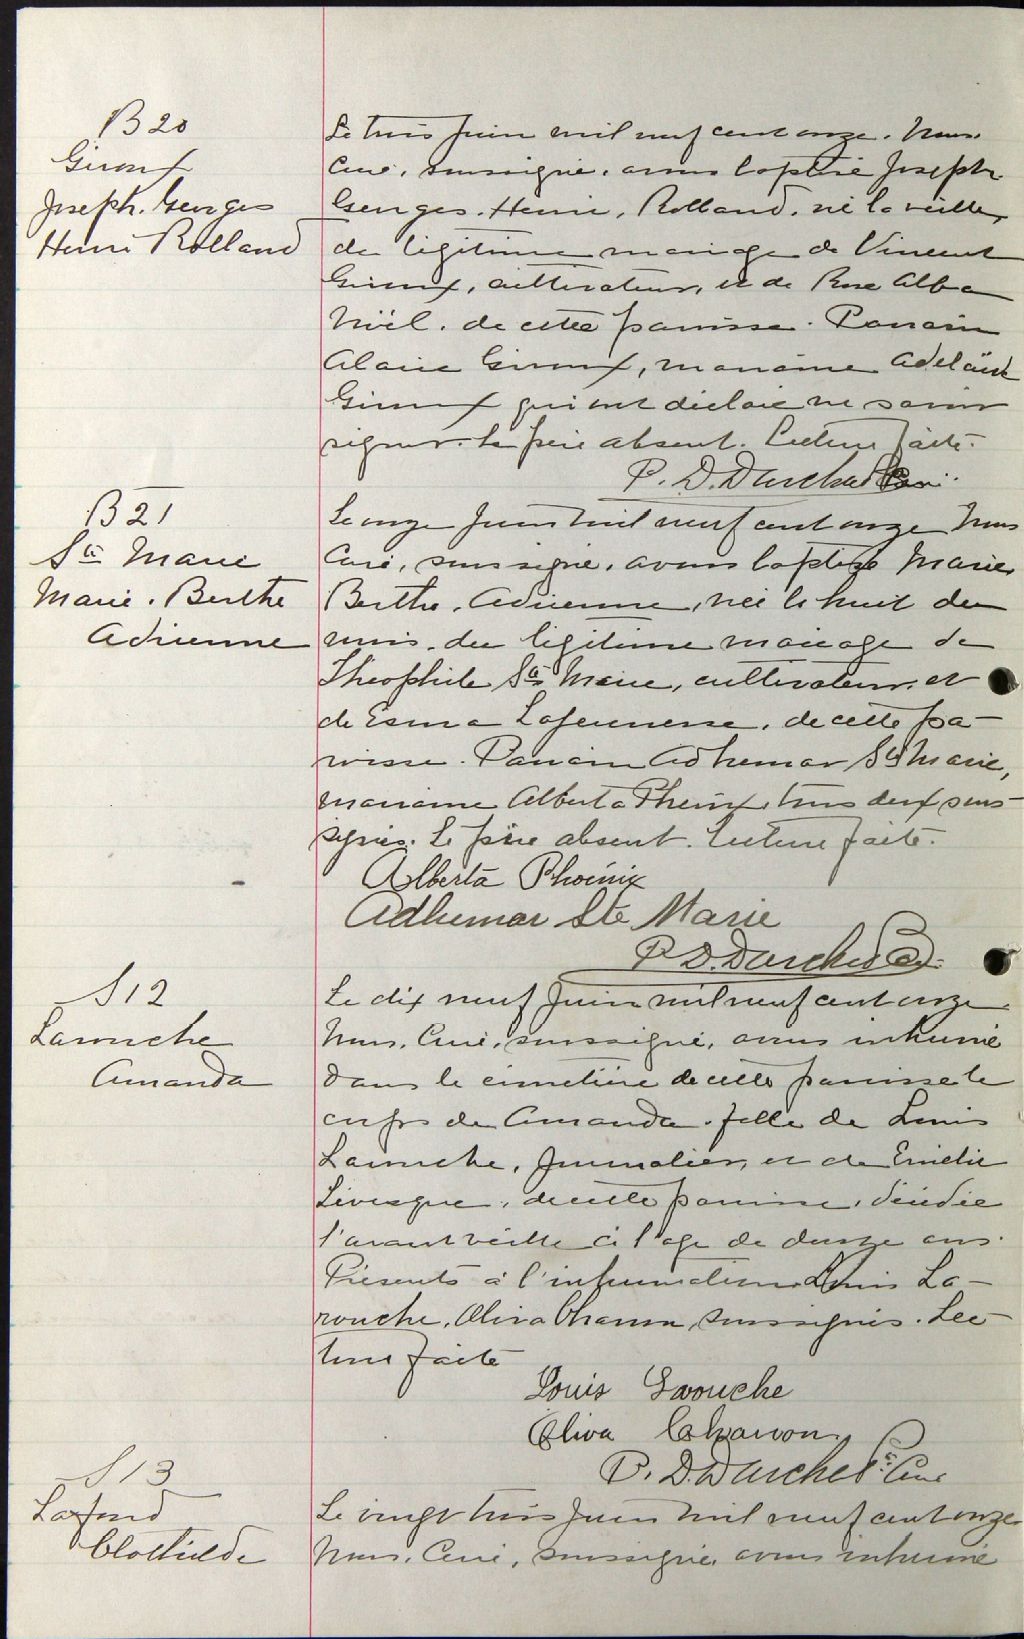 B 20
Giroux
Joseph. Georges
Henri Rolland
Le trois juin mil neuf cent onze. Nous
Curé, soussigné, avons baptisé Joseph
Georges. Henri, Rolland, né la veille,
de légitime mariage de Vincent
Giroux, cultivateur, et de Rose Alba
Noël, de cette paroisse. Parrain
Giroux, marraine Adélaïde
Giroux qui ont déclaré ne savoir
signer. Le père absent. Lecture faite.
P. D. Curé.
B 21
Ste Marie
Marie. Berthe
Adrienne
Le onze juin mil neuf cent onze Nous
Curé, soussigné, avons baptisé Marie
Berthe, Adrienne, née le huit du
mois, du légitime mariage de
Théophile Ste Marie, cultivateur, et
de Lajeunesse, de cette pa-
roisse. Parrain Adhemar Ste Marie,
marraine Alberta Phenix tous deux sous-
signés. Le père absent. Lecture faite.
Alberta Phoenix
Adhemar Ste Marie
P. D.
S 12
Larouche
Amanda
Le dix neuf juin mil neuf cent onze
Nous, Curé, soussigné, avons inhumé
dans le cimetière de cette paroisse le
corps de Amanda, fille de Louis
Larouche, journalier, et de Emélie
Lévesque, de cette paroisse, décédée
l'avant veille à l'age de douze ans.
Présents à l'inhumation Louis La-
rouche, Oliva Charron soussignés. Lec-
ture faite
Louis Larouche
Oliva Charron
P. D. Curé
S 13
Lafond
Clothilde
Le vingt trois juin mil neuf cent onze
Nous, Curé, soussigné, avons inhumé